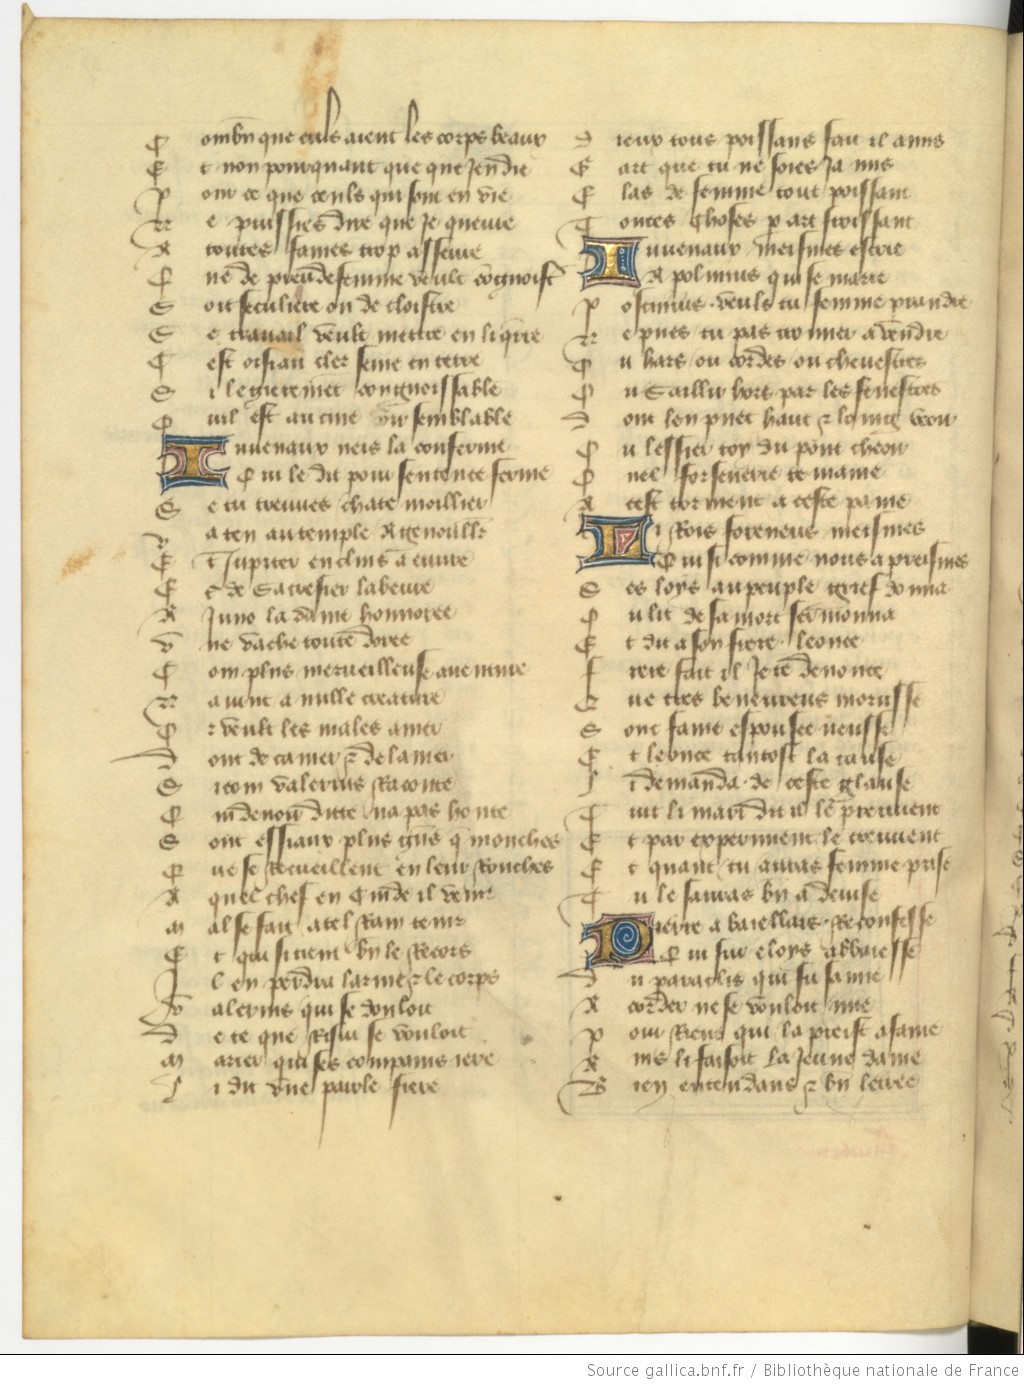 Combn que culs aient les corps beaux
Et non pourquant que que Jen die
Pour ce que ceuls qui sont en vie
Ne puissies dire que Je queuue
A toutes fames trop asseuue
Cne de preudefemme veult cognoist
Soit seculiere ou de cloistre
Se travail veult mettre en li querre
Cest oisiau cler seme en terre
Si legierement congnoissable
Quil est au cine noir semblable
Iuuenaux neis la conferme
Qui le dit pour sentence ferme
Se tu treuues chaste moillier
Va ten au temple Agenoullr
Et Jupiter enclins a
Et de sacrefier labeure
A Juno la dame honnoree
Vne vache toute doree
Com plus merueilleuse auenture
Nauint a nulle creature
Qr veult les males amer
Dont deca mer & dela mer
Sicom valerius Raconte
Qui de nou dire na pas honte
Sont essiaux plus gns q mouches
Que se Recueillent en leur Rouches
A quel chef en cuide il venir
Mal se fait a tel Ram tenir
Et qui sitient bn le Recors
Il en perdra larme & le corps
Valerius qui se douloit
De ce que Rufin se vouloit
Marier qui ses compains iere
Si dit vne parole fiere
Dieux tous poissans fait il amis
Gart que tu ne soies Ja mis
Es las de femme tout poissant
Toutes choses p art froissant
Iuuenaux meismes escrie
A Polmius qui se marie
Postumus veuls tu femme prandre
Ne pues tu pas trouuer a vendre
Ou hars ou cordes ou cheuestres
Ou Saillir hors par les fenestres
Dont len puet hault & loing veoir
Ou lessier toy du pont cheoir
Quel forsenerie te maine
A cest torment a ceste paine
Li Rois foroneus meismes
Qui si comme nous apreismes
Ses loys au peuple grief donna
Ou lit de sa mort sermonna
Et dit a son frere leonce
Frere fait il Je te denonce
Que tres beneureus morusse
Sonc fame espousee neusse
Et leonce tantost la cause
Li demanda de ceste glause
Tuit li mari dit il le preuuent
Et par experiment le treuuent
Et quant tu auras femme prise
Tu le sauras bn a deuise
Pierre a baiellars Reconfesse
Qui sur eloys abbaiesse
Du paraclis qui fu samie
Acorder ne se vouloit mie
Pour Riens qui la preist a fame
Ains li faisoit la Jeune dame
Bien entendans & bn lectree